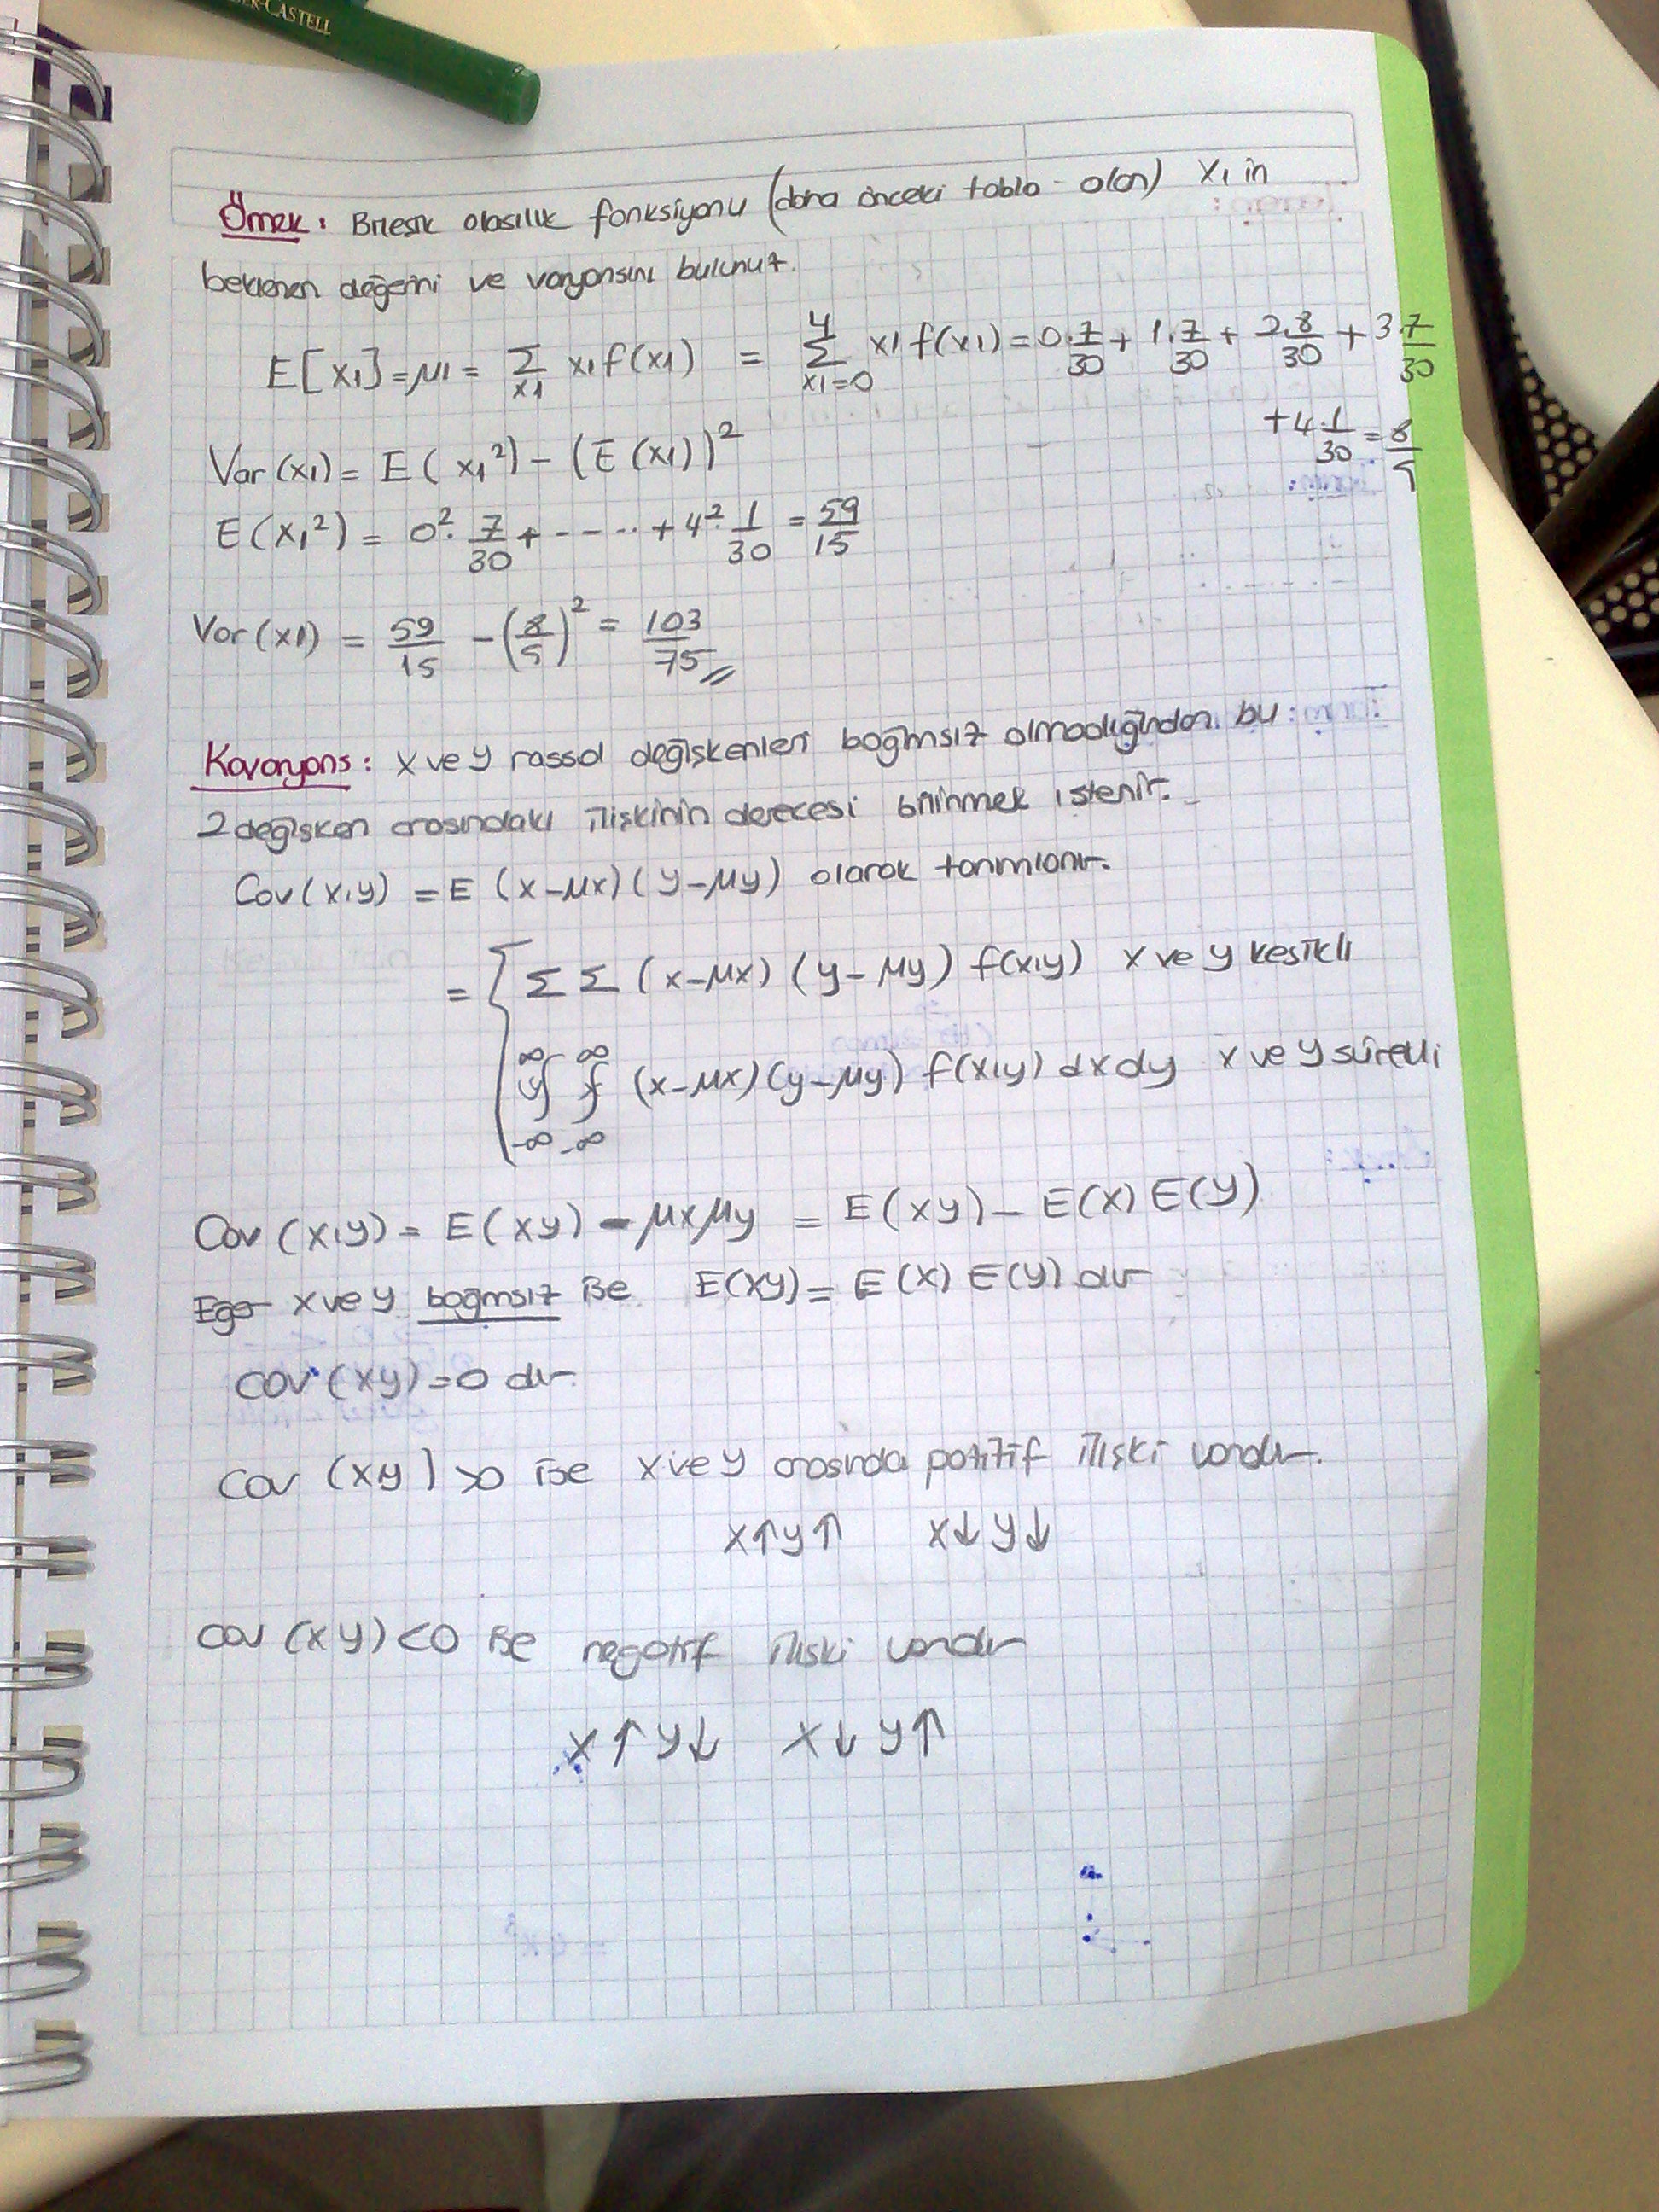 ER-CASTELL
Örnek: Bileşik olasılık fonksiyonu (daha önceki tablo olan) X₁ in
beklenen değerini ve varyansını bulunuz.
E[X₁]=μ₁ = Σ_{x₁} x₁f(x₁) = Σ_{x₁=0}^{4} x₁f(x₁) = 0.7/30 + 1.7/30 + 2.8/30 + 3.7/30
+4.1/30 = 8/5
Var(x₁) = E(x₁²) - (E(x₁))²
E(x₁²) = 0².7/30 + ----·· + 4².1/30 = 59/15
Var(x₁) = 59/15 - (8/5)² = 103/75
Kovaryans: x ve y rassal değişkenleri bağımsız olmadığından bu
2 değişken arasındaki ilişkinin derecesi bilinmek istenir.
Cov(x,y) = E (x-μx)(y-μy) olarak tanımlanır.
= { Σ Σ (x-μx) (y-μy) f(x,y) x ve y kesikli
∫_{-∞}^{∞} ∫_{-∞}^{∞} (x-μx)(y-μy) f(x,y) dxdy x ve y sürekli
Cov(x,y) = E(xy) - μxμy = E(xy) - E(x) E(y)
x ve y bağımsız ise E(xy) = E(x) E(y) dir
cov(xy)=0 dır.
cov (xy) >0 ise x ve y arasında pozitif ilişki vardır.
x↑y↑ x↓y↓
cov (xy) <0 ise negatif ilişki vardır
x↑y↓ x↓y↑